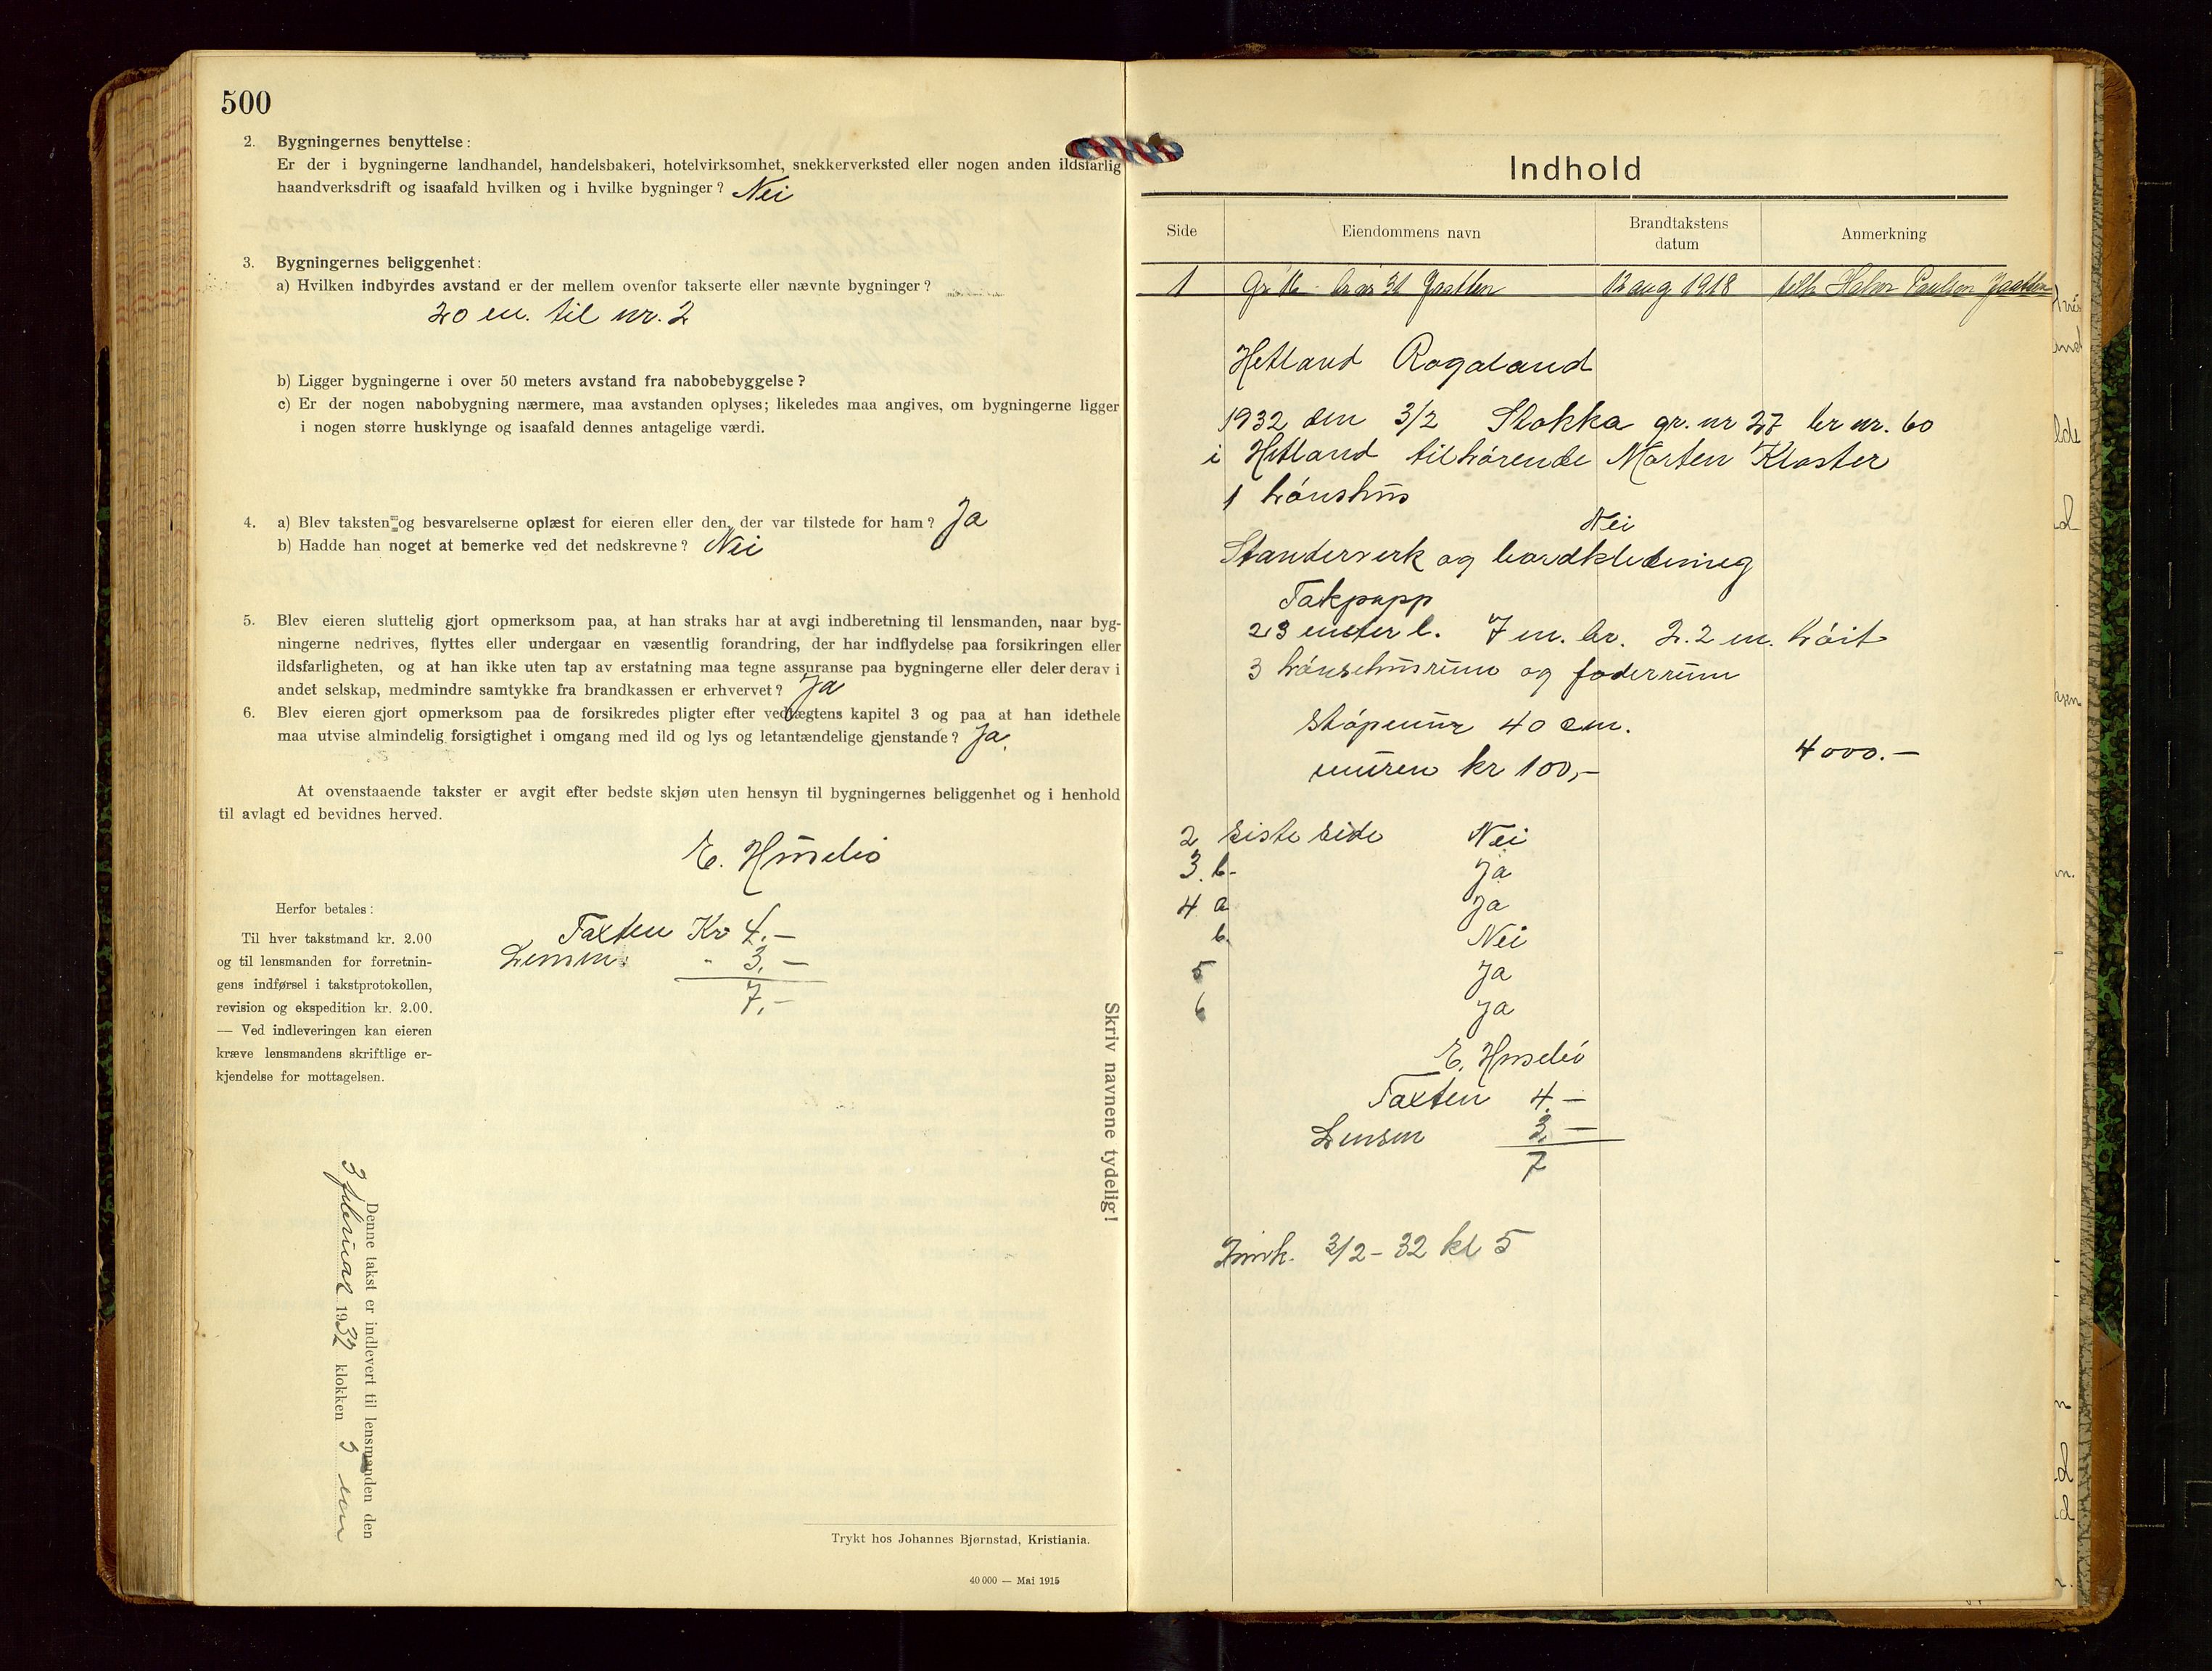 500
2. Bygningernes benyttelse:
Er der i bygningerne landhandel, handelsbakeri, hotelvirksomhet, snekkerverksted eller nogen anden ildsfarlig
haandverksdrift og isaafald hvilken og i hvilke bygninger? Nei
3. Bygningernes beliggenhet:
a) Hvilken indbyrdes avstand er der mellem ovenfor takserte eller nævnte bygninger?
20 m. til nr. 2
b) Ligger bygningerne i over 50 meters avstand fra nabobebyggelse?
c) Er der nogen nabobygning nærmere, maa avstanden oplyses; likeledes maa angives, om bygningerne ligger
i nogen større husklynge og isaafald dennes antagelige værdi.
4. a) Blev taksten og besvarelserne oplæst for eieren eller den, der var tilstede for ham? Ja
b) Hadde han noget at bemerke ved det nedskrevne? Nei
5. Blev eieren sluttelig gjort opmerksom paa, at han straks har at avgi indberetning til lensmanden, naar byg-
ningerne nedrives, flyttes eller undergaar en væsentlig forandring, der har indflydelse paa forsikringen eller
ildsfarligheten, og at han ikke uten tap av erstatning maa tegne assuranse paa bygningerne eller deler derav i
andet selskap, medmindre samtykke fra brandkassen er erhvervet? Ja
6. Blev eieren gjort opmerksom paa de forsikredes pligter efter vedtægtens kapitel 3 og paa at han idethele
maa utvise almindelig forsigtighet i omgang med ild og lys og letantændelige gjenstande? Ja.
At ovenstaaende takster er avgit efter bedste skjøn uten hensyn til bygningernes beliggenhet og i henhold
til avlagt ed bevidnes herved.
E. Husebø
Herfor betales:
Til hver takstmand kr. 2.00
og til lensmanden for forretnin-
gens indførsel i takstprotokollen,
revision og ekspedition kr. 2.00.
— Ved indleveringen kan eieren
kræve lensmandens skriftlige er-
kjendelse for mottagelsen.
Taxten Kr 4.-
Lensm. " 3.-
7.-
Skriv navnene tydelig!
Denne takst er indlevert til lensmanden den
3 februar 1932 klokken 5 em
Trykt hos Johannes Bjørnstad, Kristiania.
40 000 — Mai 1915
Indhold
Side Eiendommens navn Brandtakstens datum Anmerkning
1 Gr 16 br nr 31 Jaatten 12 aug 1918 tilh Halvor Paulsen Jaatten
Hetland Rogaland
1932 den 3/2 Stokka gr. nr 27 br nr. 60
i Hetland tilhørende Morten Kloster
1 hønshus
Nei
Standerverk og bordkledning
Takpapp
23 meter l. 7 m. br. 2.2 m. høit
3 hønsehusrum og foderrum
støpemur 40 cm.
4000.-
muren kr 100,-
2 siste side Nei
3. b. Ja
4 a Ja
b. Nei
5 Ja
6 Ja
E. Husebø
Taxten 4.-
Lensm 3.-
7
Innk. 3/2-32 kl 5